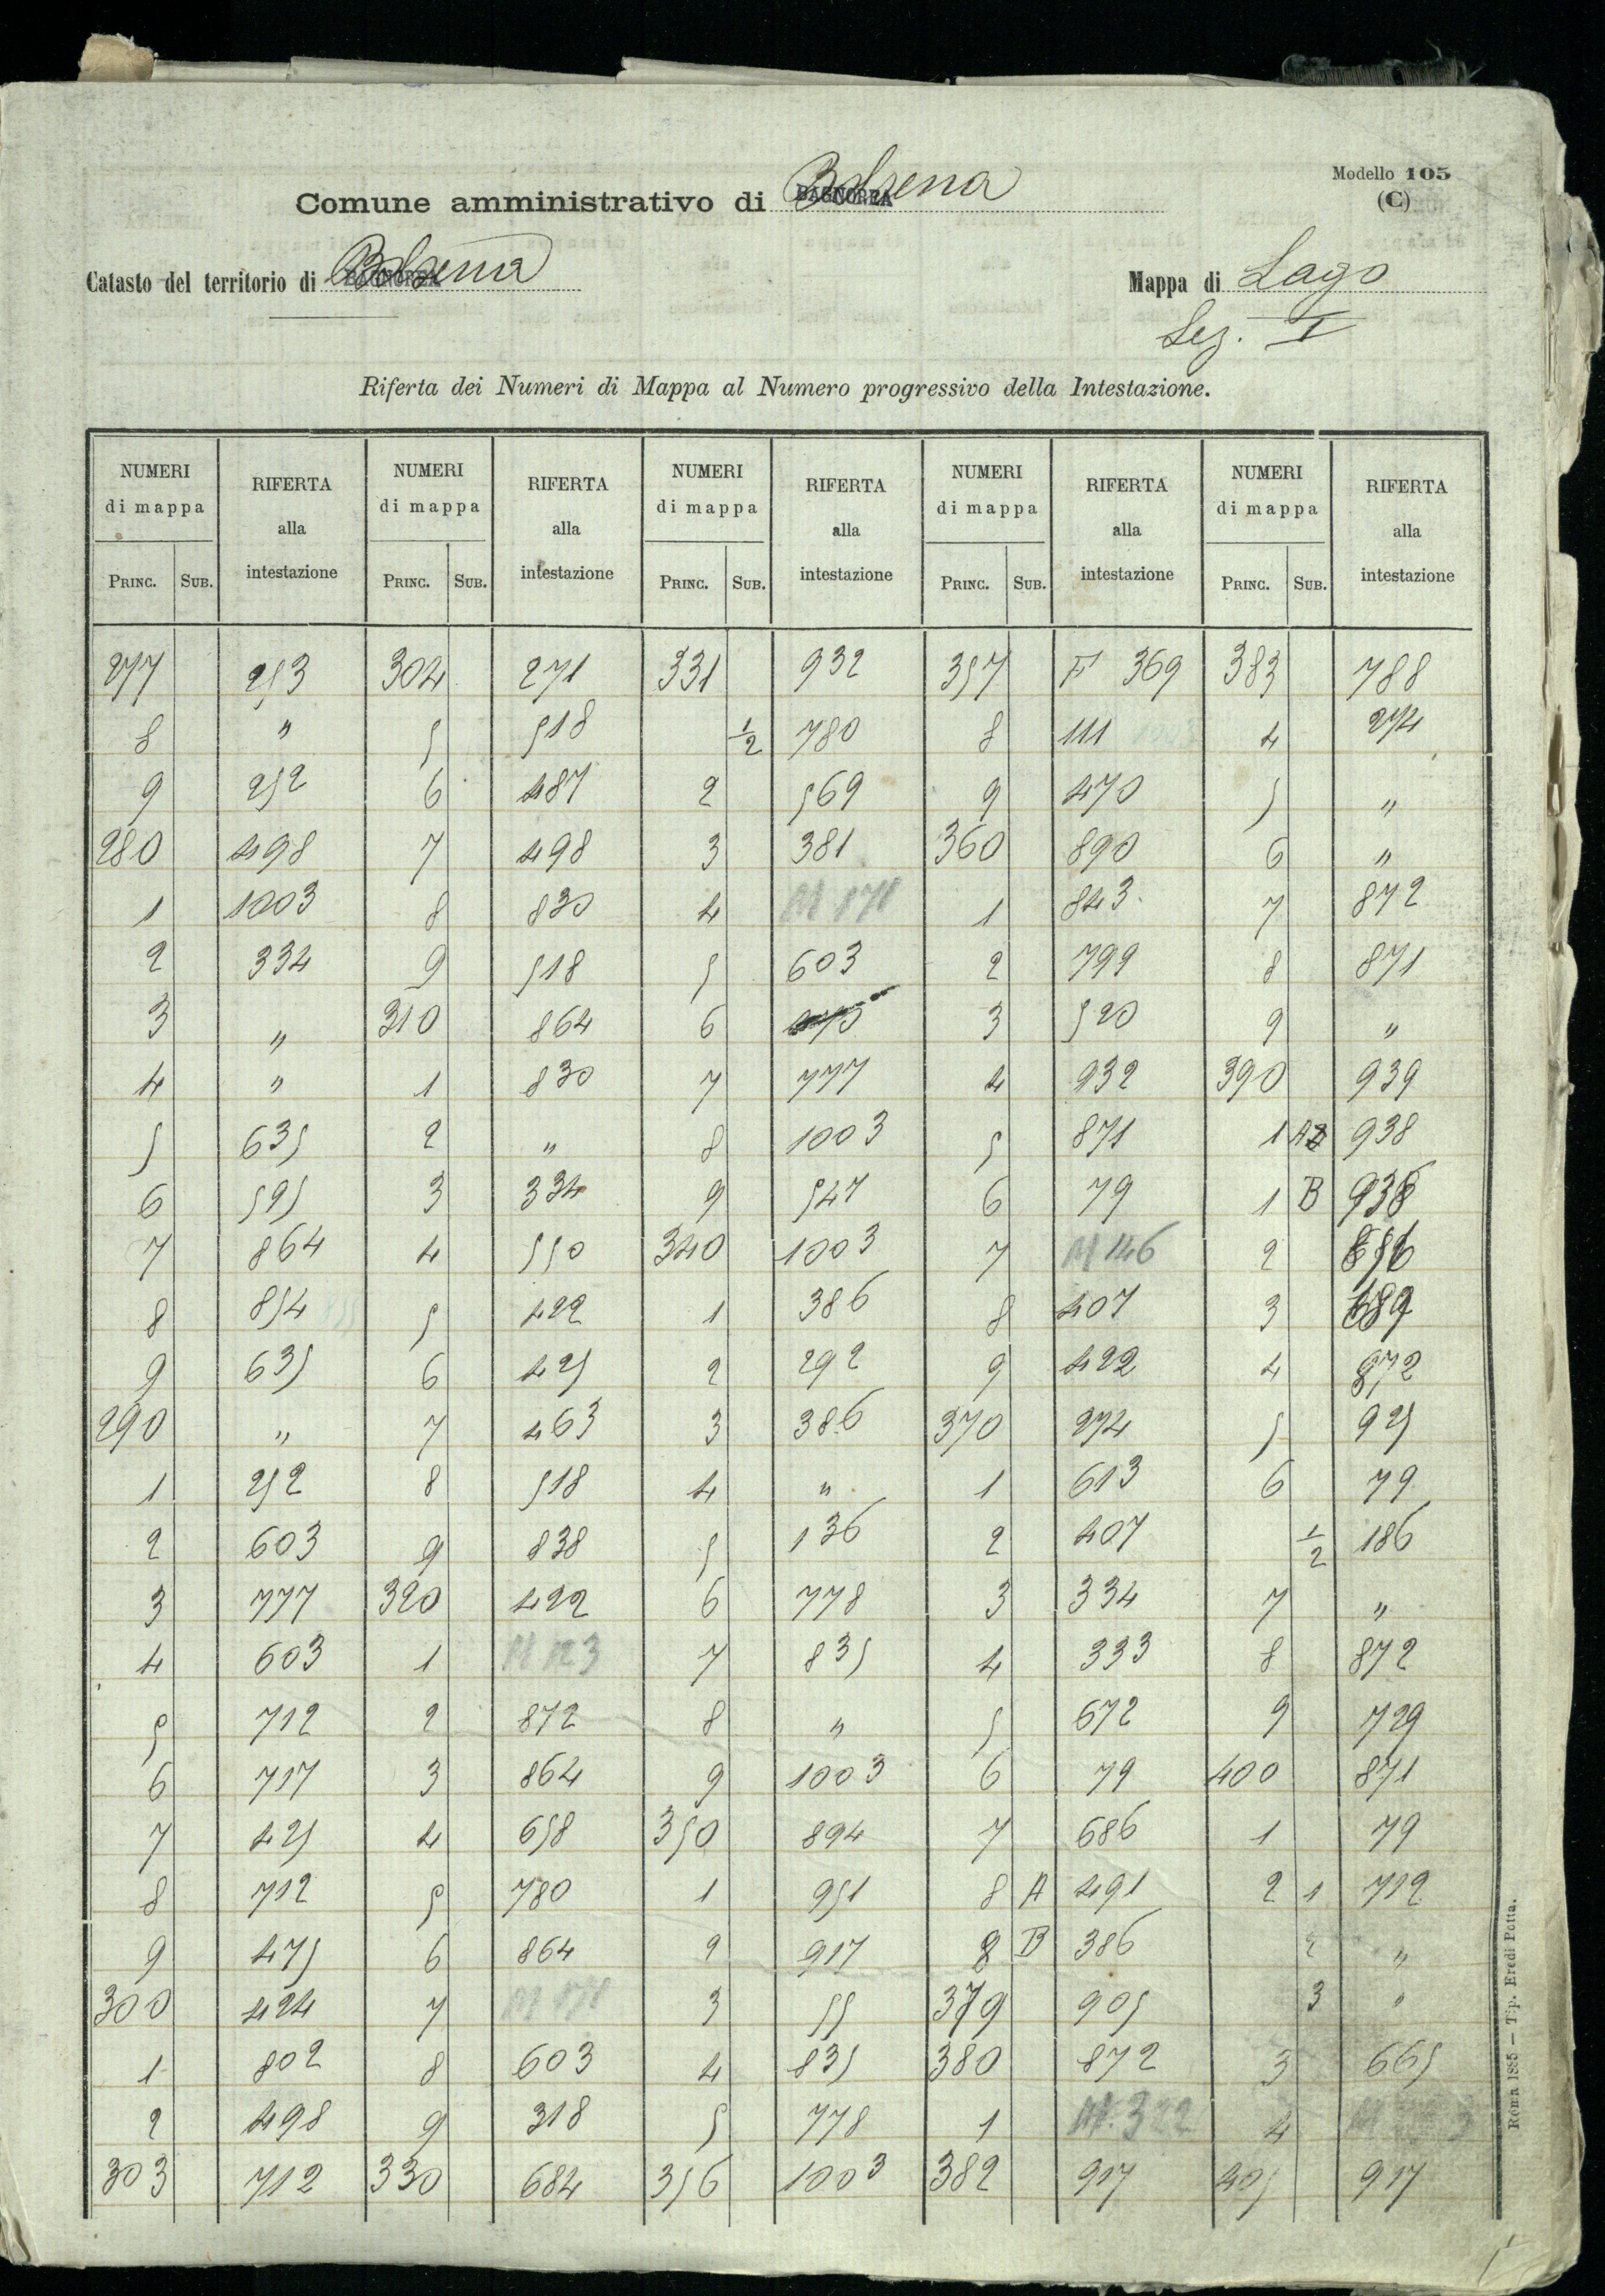 Modello 105
(C)
Comune amministrativo di Bolsena
Catasto del territorio di Bolsena Mappa di Lago
Sez. I
Riferta dei Numeri di Mappa al Numero progressivo della Intestazione.
NUMERI di mappa RIFERTA alla intestazione NUMERI di mappa RIFERTA alla intestazione NUMERI di mappa RIFERTA alla intestazione NUMERI di mappa RIFERTA alla intestazione NUMERI di mappa RIFERTA alla intestazione
PRINC. SUB. PRINC. SUB. PRINC. SUB. PRINC. SUB. PRINC. SUB.
277 253 304 271 331 932 357 F 369 383 788
8 " 5 518 1/2 780 8 111 4 274
9 252 6 487 2 569 9 470 5 "
280 498 7 498 3 381 360 890 6 "
1 1003 8 830 4 1 843 7 872
2 334 9 518 5 603 2 799 8 871
3 " 310 864 6 3 520 9 "
4 " 1 830 7 777 4 932 390 939
5 635 2 " 8 1003 5 871 1 A 938
6 595 3 334 9 547 6 79 1 B 938
7 864 4 550 340 1003 7 M 146 2
8 854 5 422 1 386 8 407 3
9 635 6 425 2 292 9 422 4 872
290 " 7 463 3 386 370 274 5 925
1 252 8 518 4 " 1 613 6 79
2 603 9 838 5 136 2 407 1/2 186
3 777 320 422 6 778 3 334 7 "
4 603 1 M 123 7 835 4 333 8 872
5 712 2 872 8 " 5 672 9 729
6 717 3 864 9 1003 6 79 400 871
7 425 4 658 350 894 7 686 1 79
8 712 5 780 1 951 8 A 491 2 1 712
9 475 6 864 2 917 8 B 386 2 "
300 424 7 3 55 379 905 3 "
1 802 8 603 4 835 380 872 3 665
2 498 9 318 5 778 1 M. 322 4
303 712 330 684 356 1003 382 917 405 917
Roma 1885 — Tip. Eredi Botta.